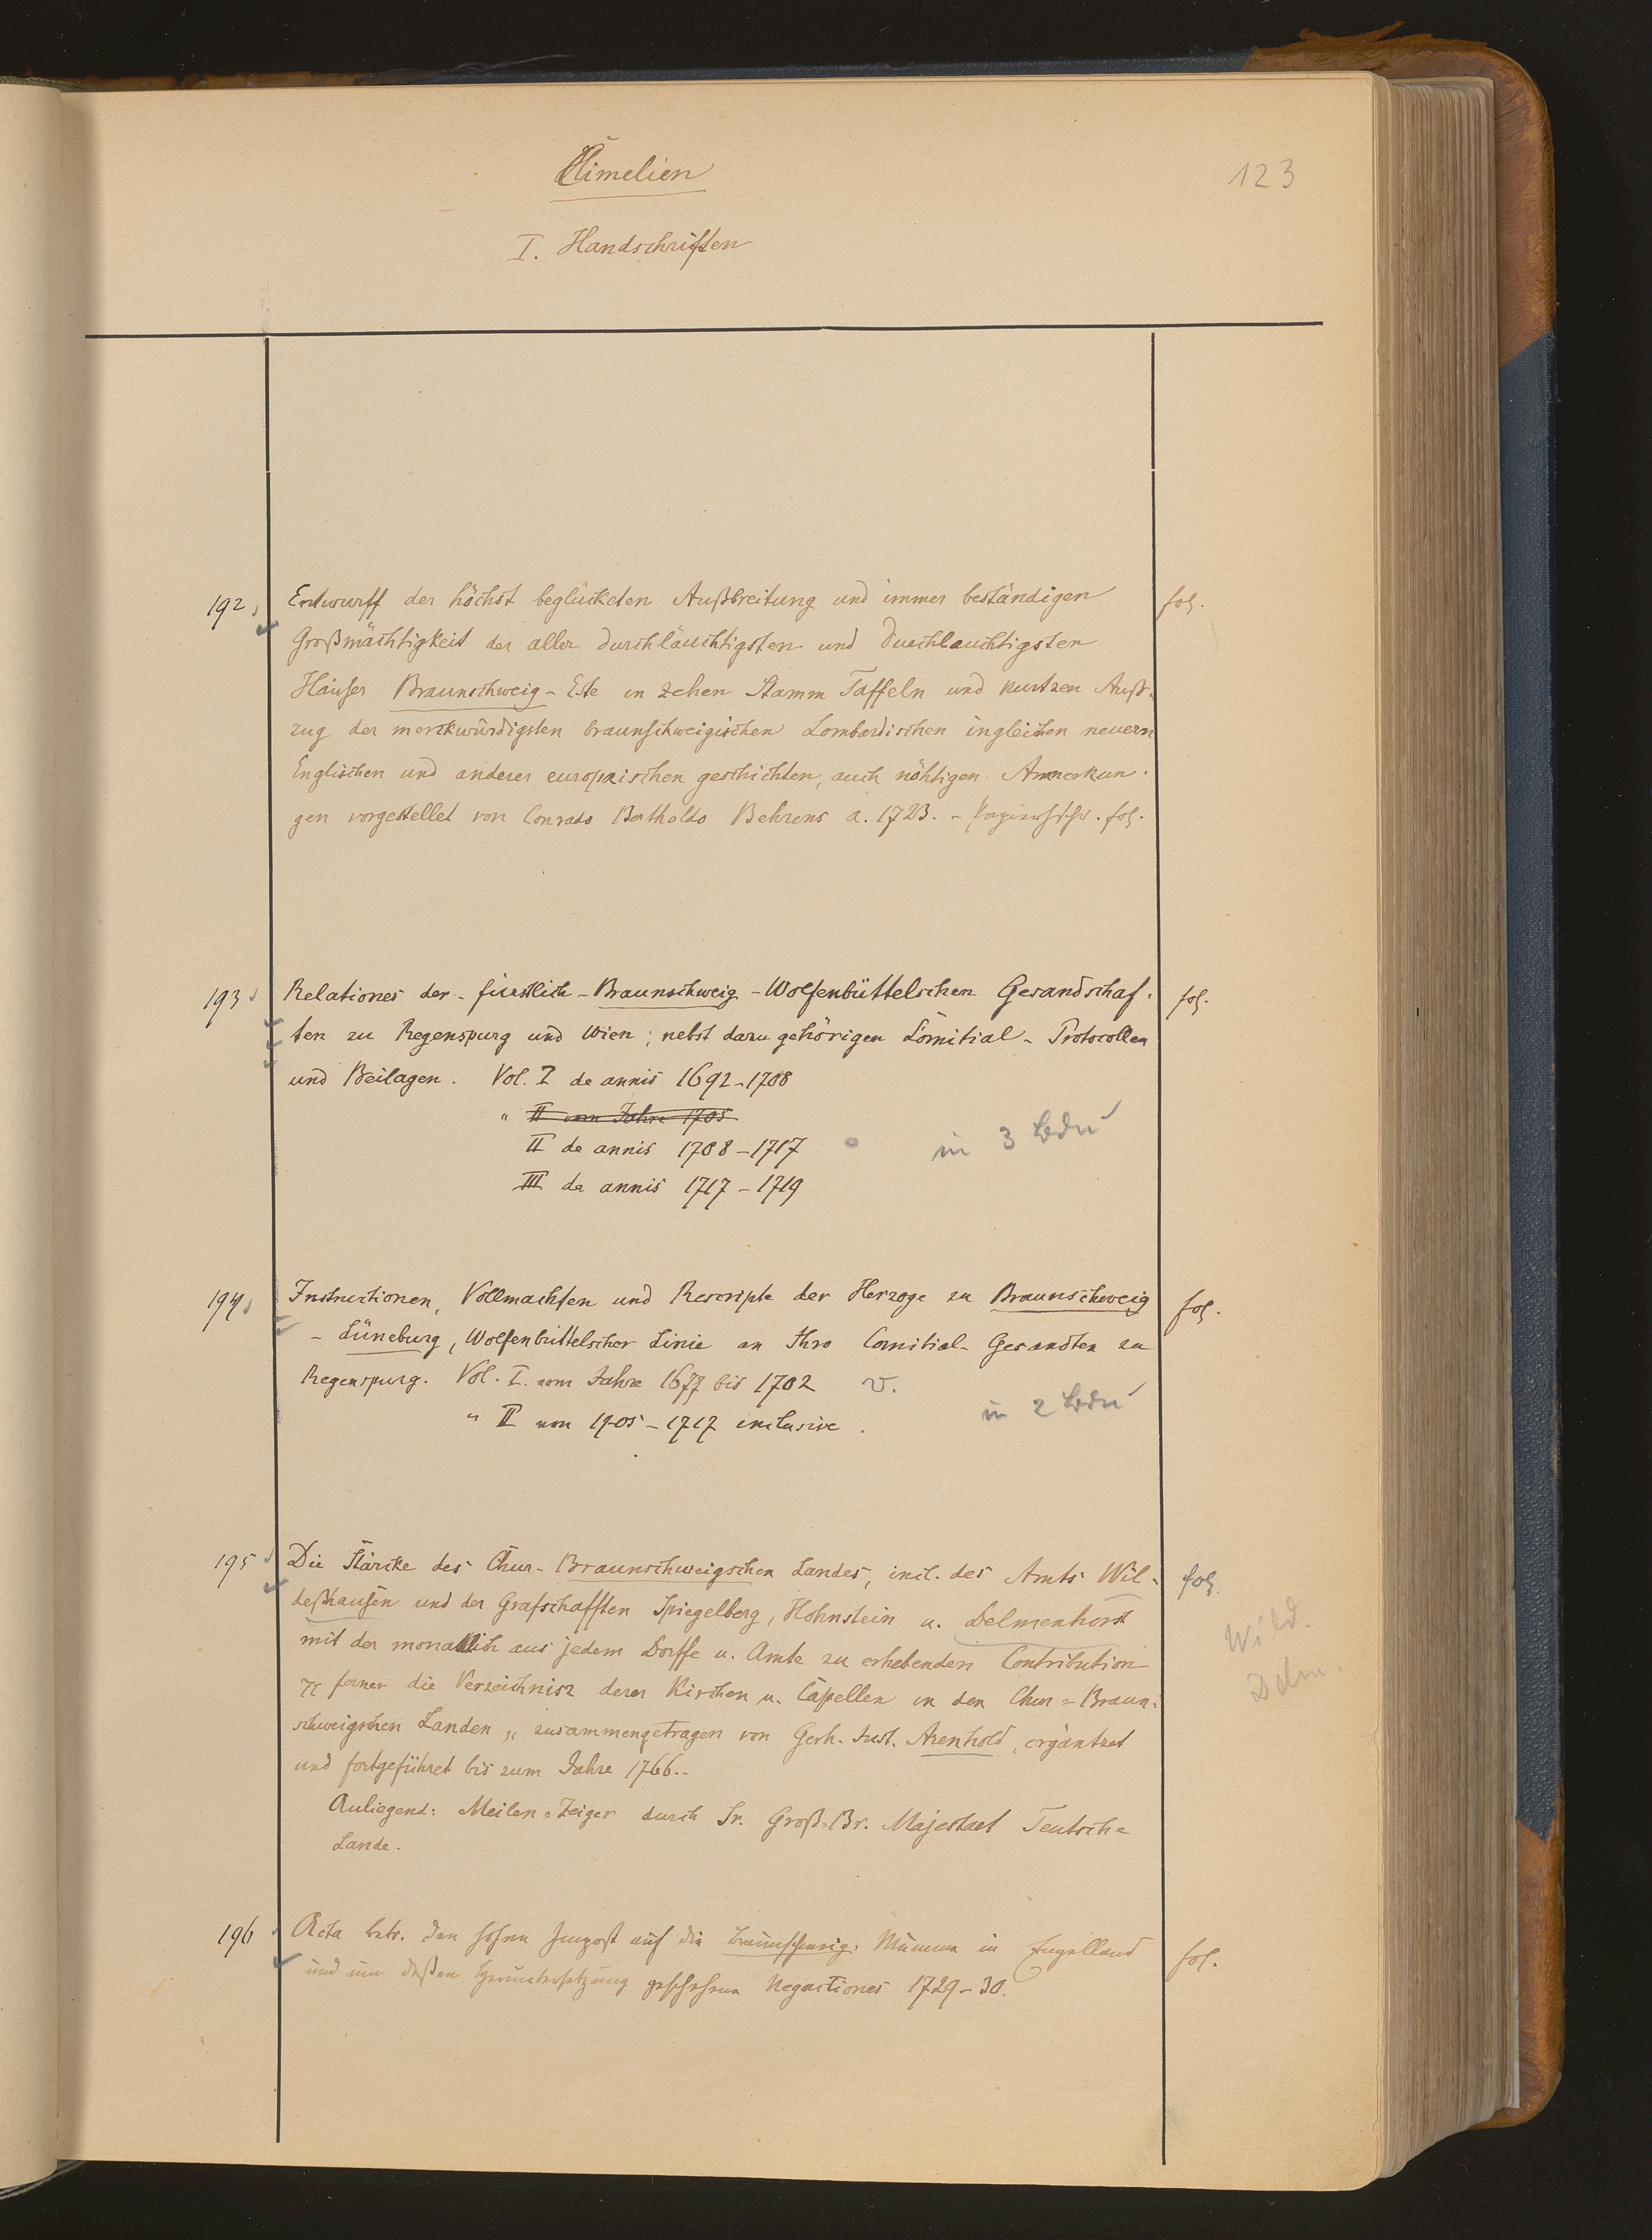 Cimelien
123
I. Handschriften
192
Entwurff der höchst beglückten Außbreitung und immer beständigen
fol.
Großmächtigkeit der aller durchläuchtigsten und Durchlauchtigsten
Häuser Braunschweig-Este in zehen Stamm Taffeln und kurtzen Auß-
zug der merckwürdigsten braunschweigischen Lombardischen ingleichen neuern
Englischen und anderer europaischen geschichten, auch nöhtigen Anmerkun-
gen vorgestellet von Conrado Bertholdo Behrens a. 1723. - Papierhschr. fol.
193
Relationes der-fürstlich-Braunschweig-Wolfenbüttelschen Gesandschaf-
fol.
ten zu Regenspurg und Wien; nebst dazu gehörigen Comitial-Protocollen
und Beilagen. Vol. I de annis 1692-1708
" II vom Jahre 1705
II de annis 1708-1717
in 3 Bdn
III de annis 1717-1719
194
Instructionen, Vollmachten und Rescripte der Herzoge zu Braunschweig
fol.
-Lüneburg, Wolfenbüttelscher Linie an Ihro Comitial-Gesandten zu
Regenspurg. Vol. I. vom Jahre 1677 bis 1702 v.
" II von 1705-1717 inclusive.
in 2 Bdn
195
Die Stärcke des Chur-Braunschweigschen Landes, incl. des Amts Wil-
fol.
deßhausen und der Grafschafften Spiegelberg, Hohnstein u. Delmenhorst
Wild.
mit der monatlich aus jedem Dorffe u. Amte zu erhebenden Contribution
Delm.
ferner die Verzeichnisz derer Kirchen u. Capellen in den Chur=Braun-
schweigschen Landen, zusammengetragen von Gerh. Just. Arenhold, ergäntzet
und fortgeführet bis zum Jahre 1766.-
Anliegend: Meilen=Zeiger durch Sr. Groß=Br. Majestaet Teutsche
Lande.
196
Acta betr. den hohen Impost auf die braunschweig. Mumme in Engelland
fol.
und um deßen Heruntersetzung geschehene Negoctiones 1729-30.